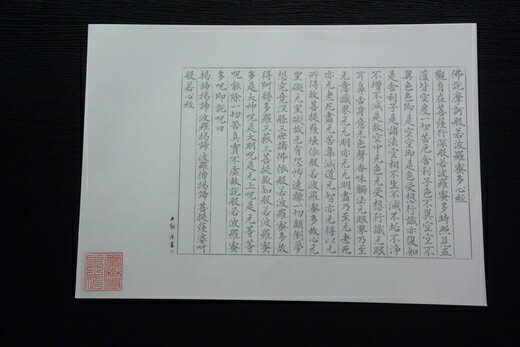 佛說摩訶般若波羅蜜多心經
觀自在菩薩行深般若波羅蜜多時照見五
蘊皆空度一切苦厄舍利子色不異空空不
異色色即是空空即是色受想行識亦復如
是舍利子是諸法空相不生不滅不垢不淨
不增不減是故空中无色无受想行識无眼
耳鼻舌身意无色聲香味觸法无眼界乃至
无意識界无无明亦无无明盡乃至无老死
亦无老死盡无苦集滅道无智亦无得以无
所得故菩提薩埵依般若波羅蜜多故心无
罣礙无罣礙故无有恐怖遠離一切顛倒夢
想究竟涅槃三世諸佛依般若波羅蜜多故
得阿耨多羅三藐三菩提故知般若波羅蜜
多是大神呪是大明呪是无上呪是无等等
呪能除一切苦真實不虛故說般若波羅蜜
多呪即說呪曰
揭諦揭諦 波羅揭諦 波羅僧揭諦 菩提薩婆呵
般若心經